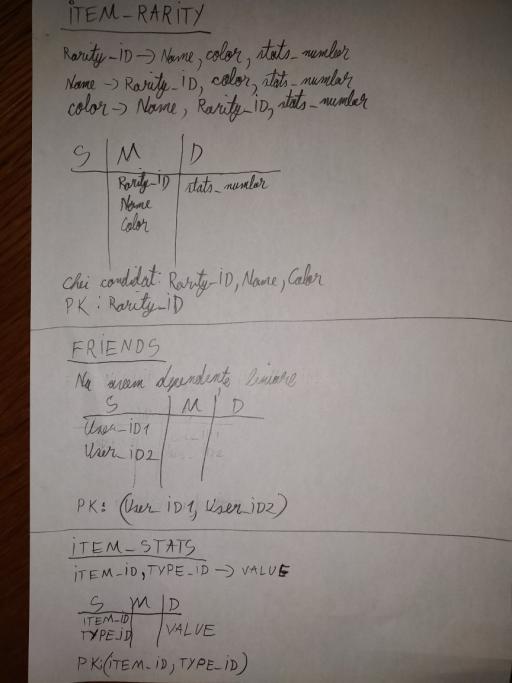 ITEM_RARITY
Rarity_ID -> Name, color, stats_number
Name -> Rarity_ID, color, stats_number
color -> Name, Rarity_ID, stats_number
S | M | D
Rarity_ID | stats_number
Name
Color
Chei candidat: Rarity_ID, Name, Color
PK: Rarity_ID
FRIENDS
Nu avem dependente
S | M | D
User_ID1
User_ID2
PK: (User ID1, User_ID2)
ITEM_STATS
ITEM_ID, TYPE_ID -> VALUE
S | M | D
ITEM_ID
TYPE_ID | VALUE
PK:(ITEM_ID, TYPE_ID)